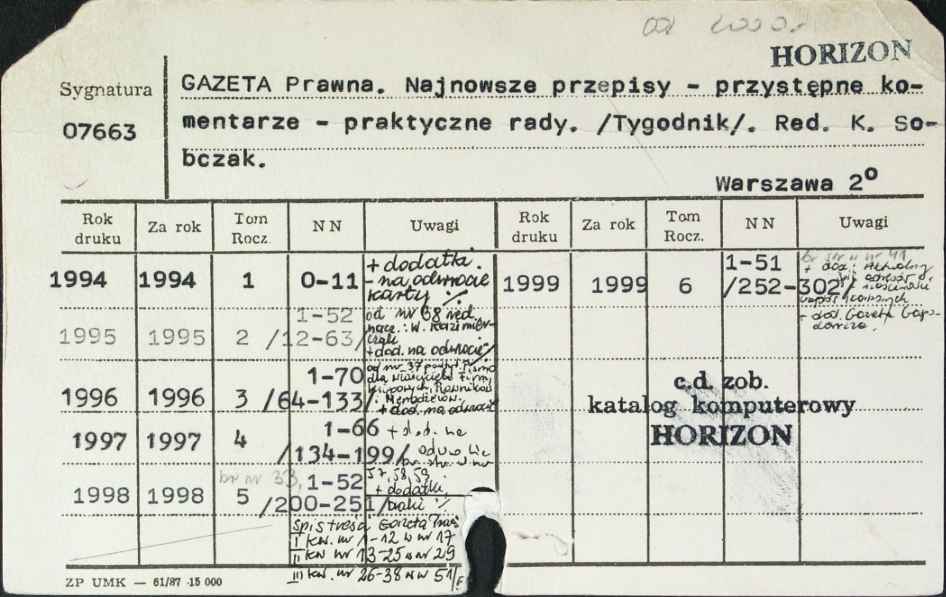 od 2000 r.
HORIZON
Sygnatura
07663
GAZETA Prawna. Najnowsze przepisy - przystępne ko-
mentarze - praktyczne rady. /Tygodnik/. Red. K. So-
bczak.
Warszawa 2º
Rok druku Za rok Tom Rocz. NN Uwagi Rok druku Za rok Tom Rocz. NN Uwagi
1994 1994 1 0-11 + dodatki.
- na odwrocie
karty %
1995 1995 2 1-52 /12-63/ od nr 68 red.
nacz.: W.
+ dod. na odwrocie
1996 1996 3 1-70 /64-133/ od nr 37
dla
+ dod. na odwrocie
1997 1997 4 1-66 /134-199/ + dod. na
odwrocie
br. str. w nr
1998 1998 5 br nr 33, 1-52 /200-251/ 57, 58, 59
+ dodatki,
braki %
Spis treści Gazeta
I kw. nr 1-12 w nr 17
II kw nr 13-25 w nr 29
III kw. nr 26-38 w nr 51
1999 1999 6 1-51 /252-302/ br str w nr 41
+ dod.:
+ dod. Gazeta Gospodarcza.
c.d. zob.
katalog komputerowy
HORIZON
ZP UMK — 61/87 15 000